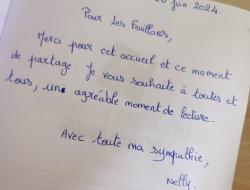 juin 2024.
Pour les Feuillans,
Merci pour cet accueil et ce moment
de partage. Je vous souhaite à toutes et
tous, une agréable moment de lecture.
Avec toute ma sympathie,
Nelly.